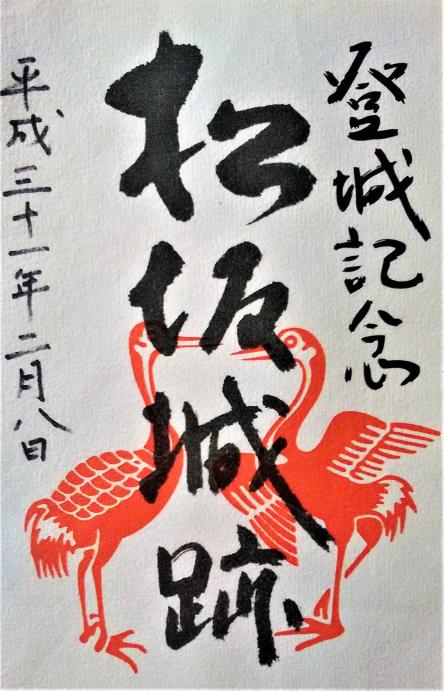 登城記念
松坂城跡
平成三十一年二月八日